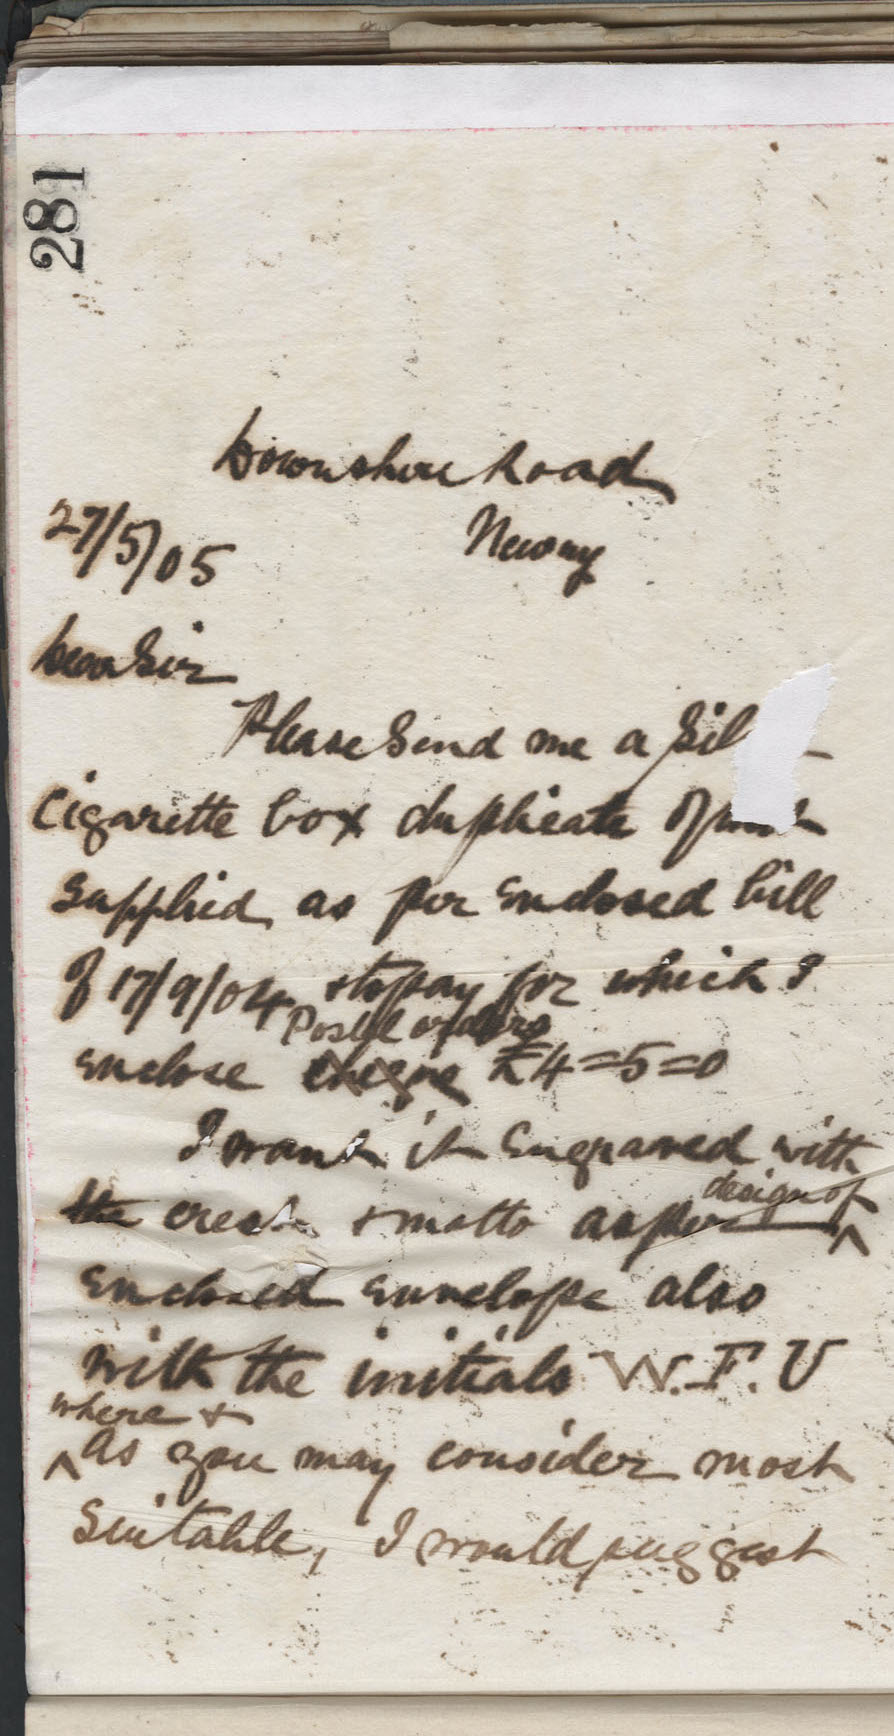 281
Downshire Road
27/5/05 Newry
Dear Sir
Please Send me a Sil
Cigarette box duplicate of
Supplied as per Enclosed bill
of 17/9/04 to pay for which I
Postal orders
Enclose cheque £4=5=0
I want it Engraved with
design of
the crest & motto as per ^
Enclosed Envelope also
with the initials W.F.U
where &
^ as you may consider most
Suitable, I would suggest